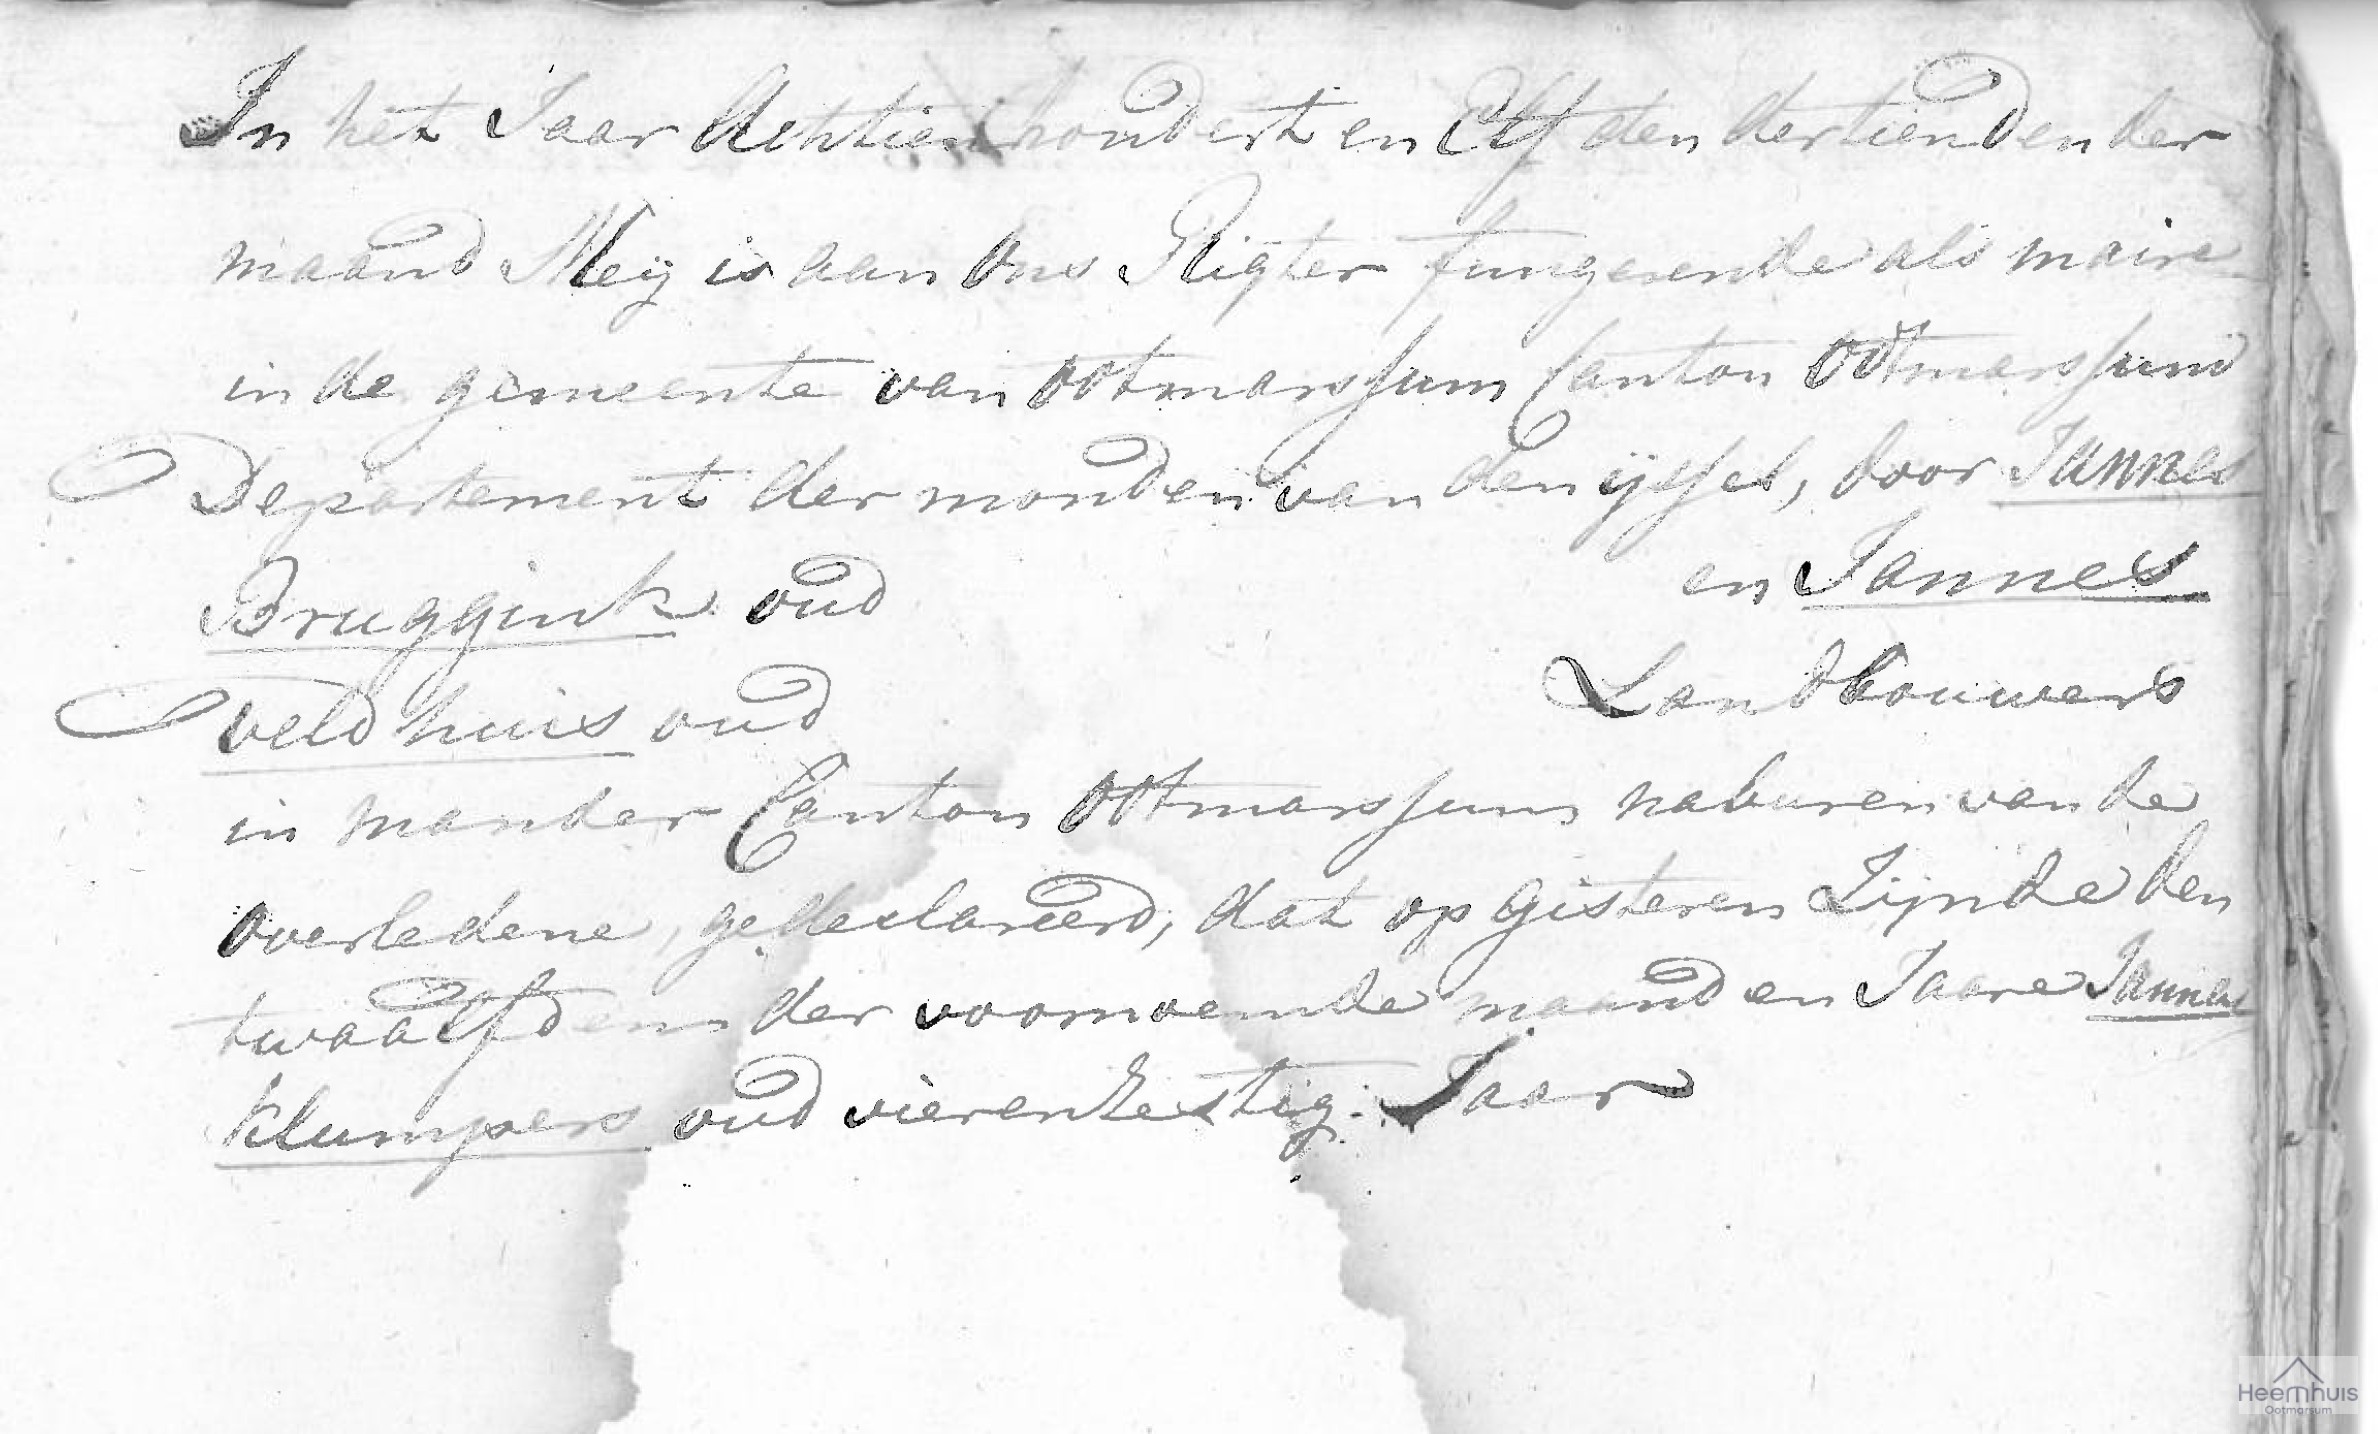 In het Jaar Achtien hondert en Elf den dertienden der
maand Meij is aan Ons Rigter fungerende als maire
in de gemeente van Ootmarssum Canton Ootmarssum
Departement der monden van den ijssel, door Jannes
Bruggink oud en Jannes
veldhuis oud Landbouwers
in mander Canton Ootmarssum naburen van de
overledene, gedeclareerd, dat op gisteren Zijnde den
twaalfden der voornoemde maand en Jaare Jannes
Klumpers oud vierenzestig Jaar
Heemhuis
Ootmarsum